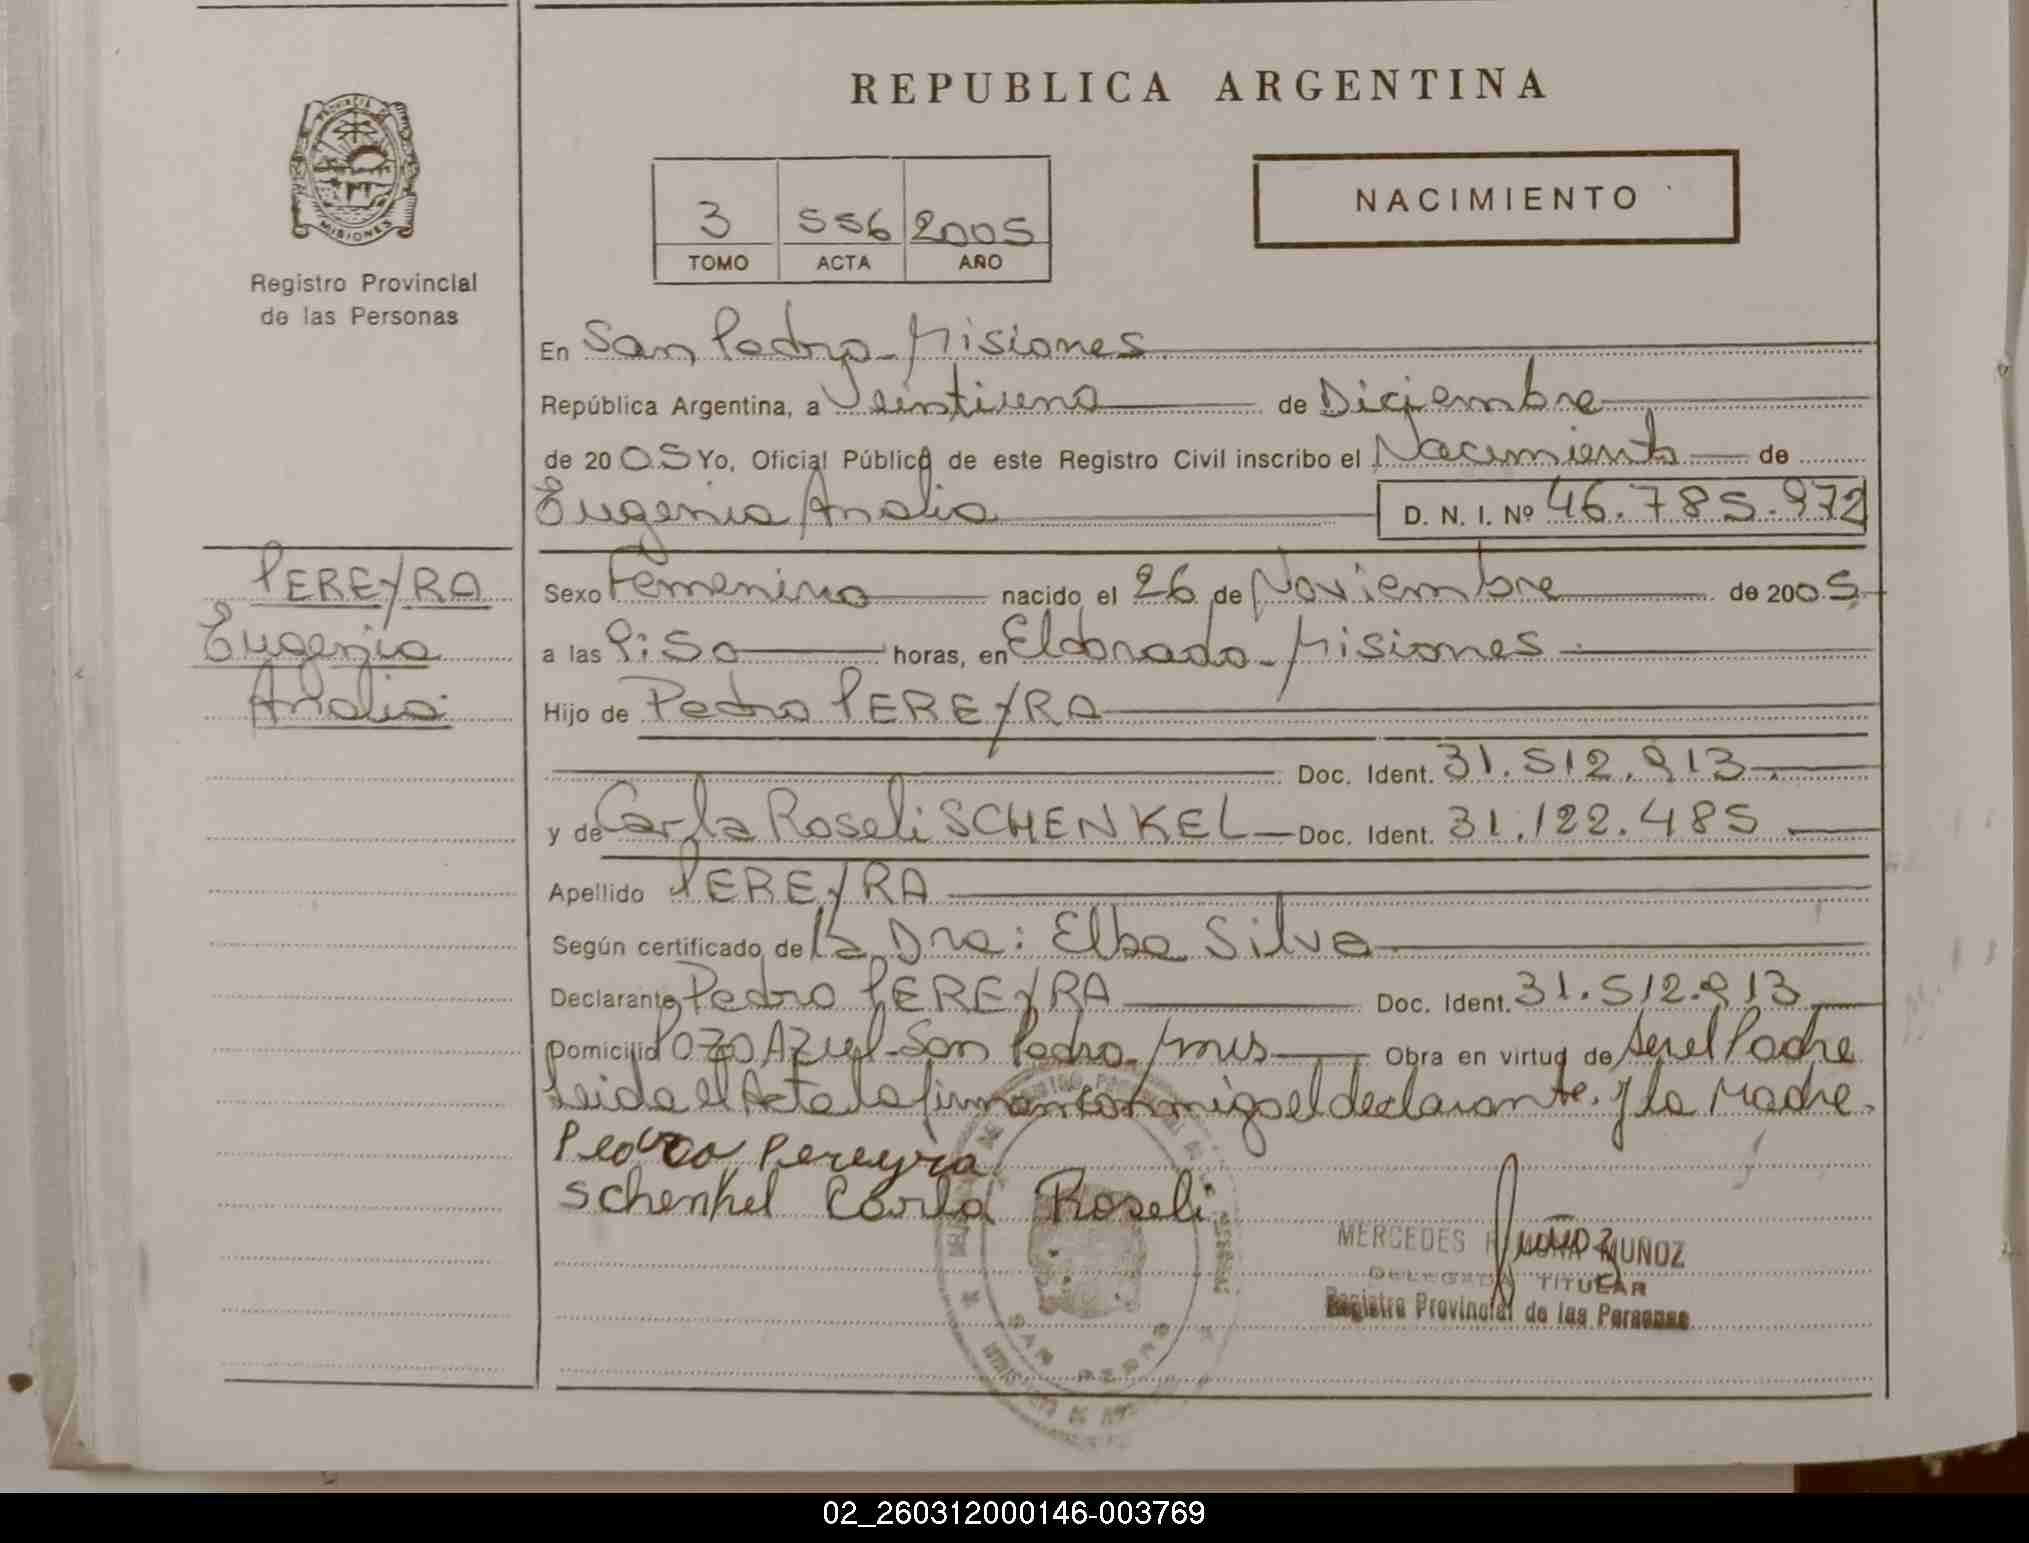 REPUBLICA ARGENTINA
PROVINCIA DE
MISIONES
Registro Provincial
de las Personas
NACIMIENTO
3 556 2005
TOMO ACTA AÑO
En San Pedro - Misiones
República Argentina, a Veintiuno de Diciembre
de 2005 Yo, Oficial Público de este Registro Civil inscribo el Nacimiento de
Eugenia Analia D. N. I. Nº 46.785.972
PEREYRA
Eugenia
Analia
Sexo Femenino nacido el 26 de Noviembre de 2005
a las horas, en Eldorado - Misiones
Hijo de Pedro PEREYRA
Doc. Ident. 31.512.913
y de Carla Roseli SCHENKEL Doc. Ident. 31.122.485
Apellido PEREYRA
Según certificado de la Dra: Elba Silva
Declarante Pedro PEREYRA Doc. Ident. 31.512.913
Domicilio Pozo Azul - San Pedro - Mnes Obra en virtud de ser el Padre
Leida el Acta la firman conmigo el declarante. y la Madre.
Pedro Pereyra
Schenkel Carla Roseli
MERCEDES MUÑOZ
DELEGADA TITULAR
Registro Provincial de las Personas
SAN PEDRO
02_260312000146-003769